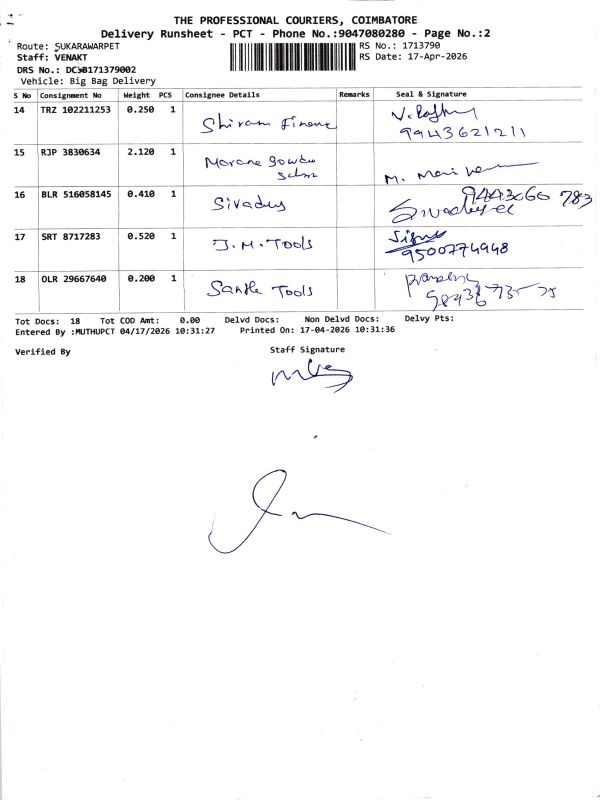 THE PROFESSIONAL COURIERS, COIMBATORE
Delivery Runsheet - PCT - Phone No.:9047080280 - Page No.:2
Route: SUKARAWARPET
RS No.: 1713790
Staff: VENAKT
RS Date: 17-Apr-2026
DRS No.: DCSB171379002
Vehicle: Big Bag Delivery
S No Consignment No Weight PCS Consignee Details Remarks Seal & Signature
14 TRZ 102211253 0.250 1 Shiram Finance
9943621211
15 RJP 3830634 2.120 1
M.
16 BLR 516058145 0.410 1 Sivadus 9443060 783
17 SRT 8717283 0.520 1 J.M. Tools
9500774948
18 OLR 29667640 0.200 1 Tools
Tot Docs: 18 Tot COD Amt: 0.00 Delvd Docs: Non Delvd Docs: Delvy Pts:
Entered By :MUTHUPCT 04/17/2026 10:31:27 Printed On: 17-04-2026 10:31:36
Verified By Staff Signature